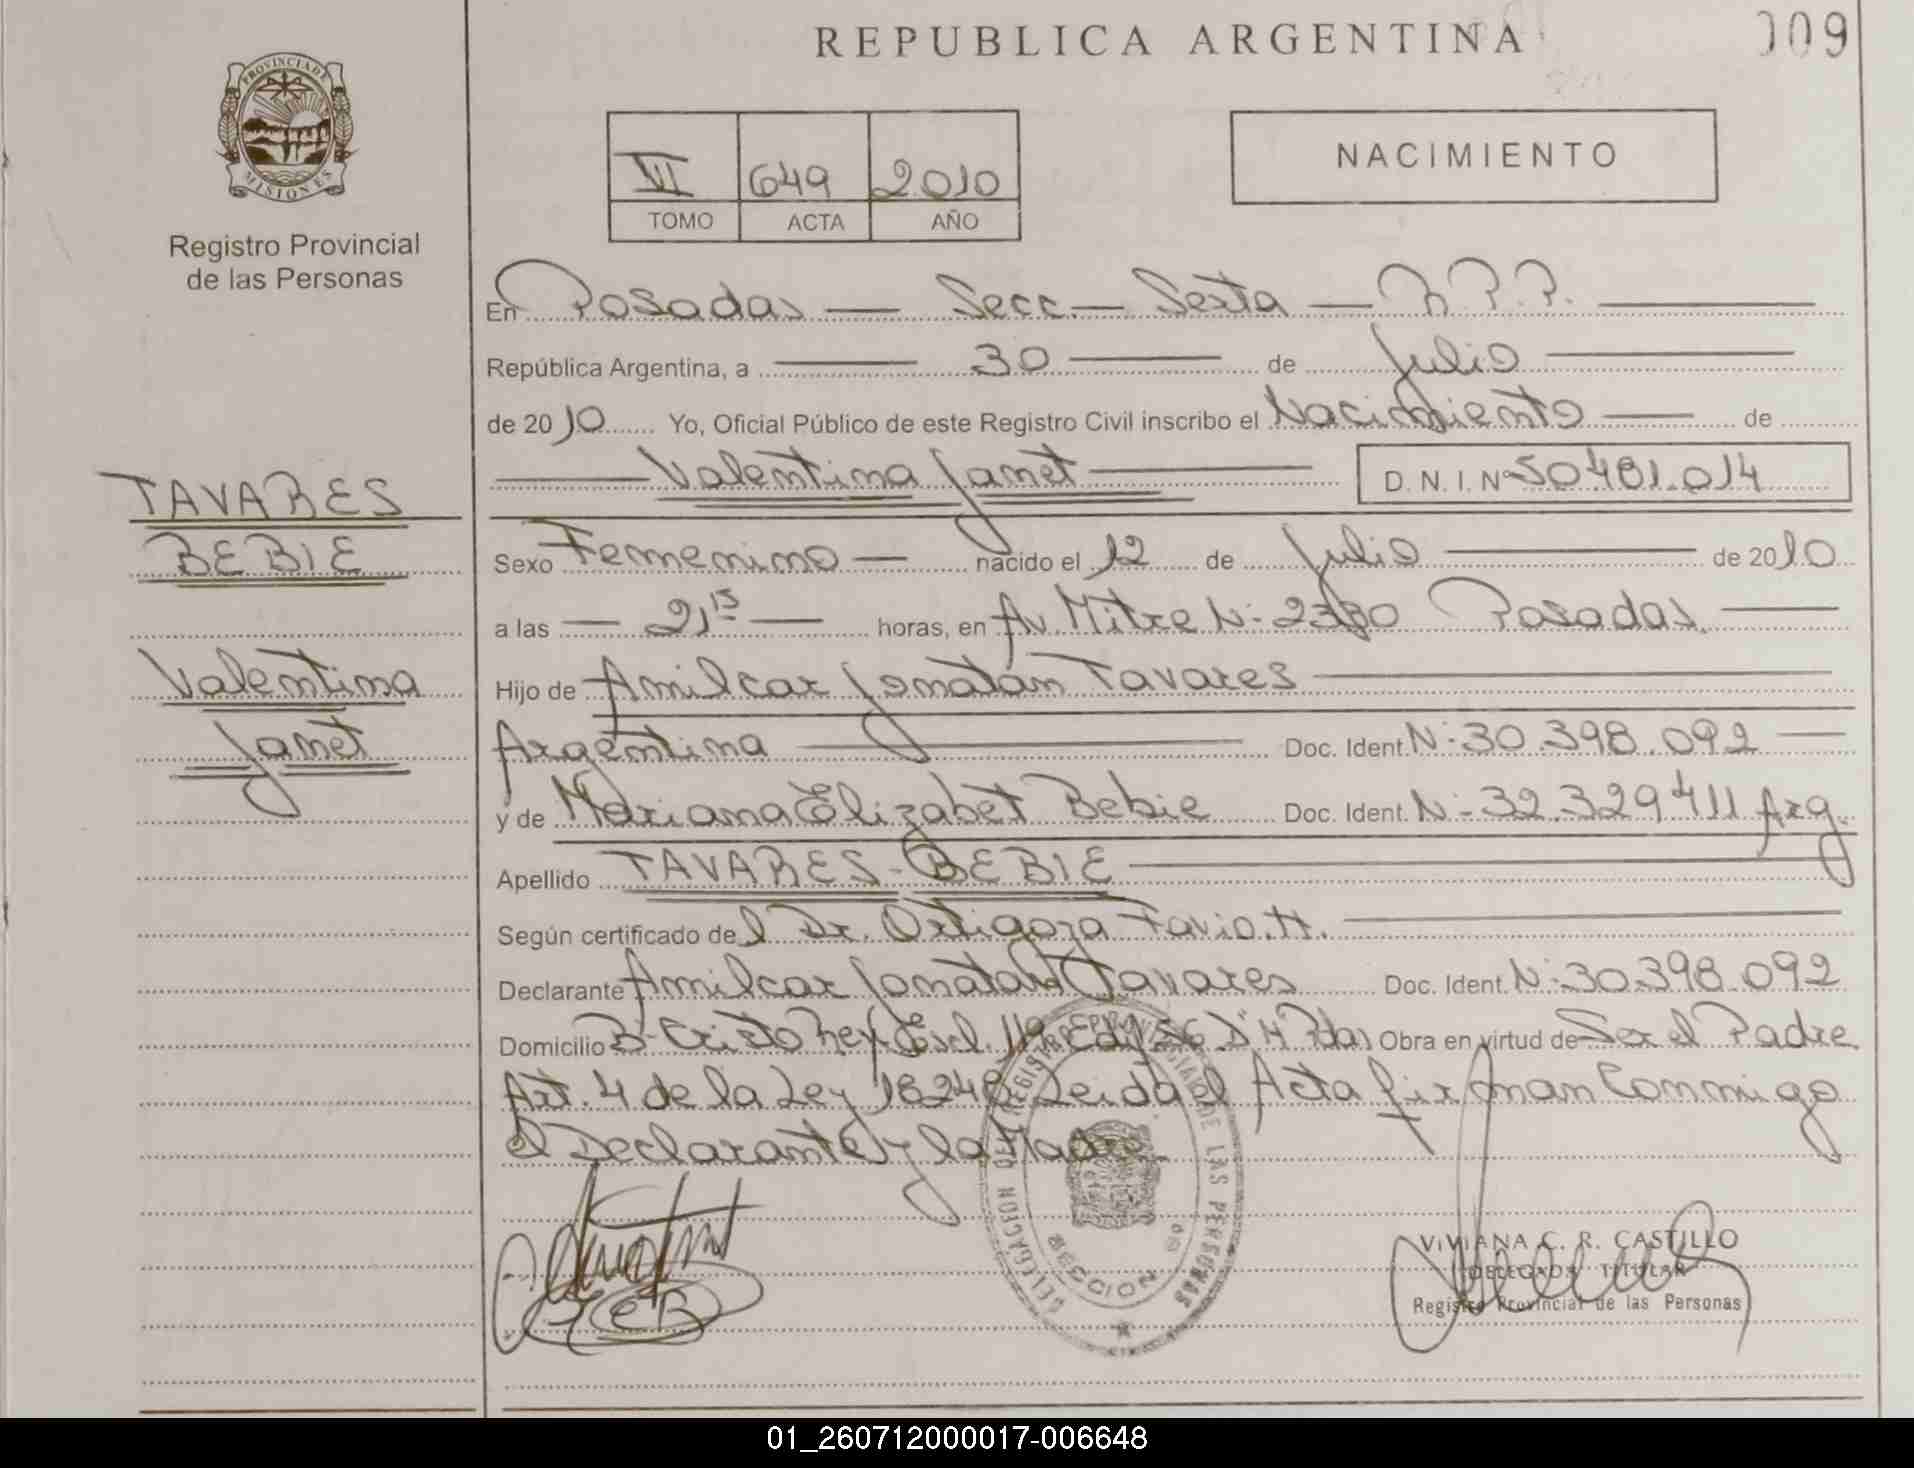 REPUBLICA ARGENTINA
009
PROVINCIA DE
MISIONES
Registro Provincial
de las Personas
VI 649 2010
TOMO ACTA AÑO
NACIMIENTO
En Posadas — Secc. — Sexta — R.P.P.
República Argentina, a 30 de Julio
de 2010 Yo, Oficial Público de este Registro Civil inscribo el Nacimiento de
Valentina Janet D. N. I. Nº 50481.014
TAVARES
BEBIE
Valentina
Janet
Sexo Femenino nacido el 12 de Julio de 2010
a las 21 15 horas, en Av. Mitre N: 2380 Posadas.
Hijo de Amilcar Jonatan Tavares
Argentina Doc. Ident. N: 30.398.092
y de Mariana Elizabet Bebie Doc. Ident. N: 32.329411 Arg.
Apellido TAVARES-BEBIE
Según certificado del Dr. Ortigoza Favio. H.
Declarante Amilcar Jonatan Tavares Doc. Ident. N: 30.398.092
Domicilio Bº Cristo Rey Escl. 119 Edif 56 Dº H Pdas Obra en virtud de Ser el Padre
Art. 4 de la Ley 18248 Leida el Acta firman Conmigo
el Declarante y la Madre.
DELEGACION DEL REGISTRO PROVINCIAL DE LAS PERSONAS
SECCION 6º
VIVIANA C. R. CASTILLO
DELEGADA TITULAR
Registro Provincial de las Personas
01_260712000017-006648